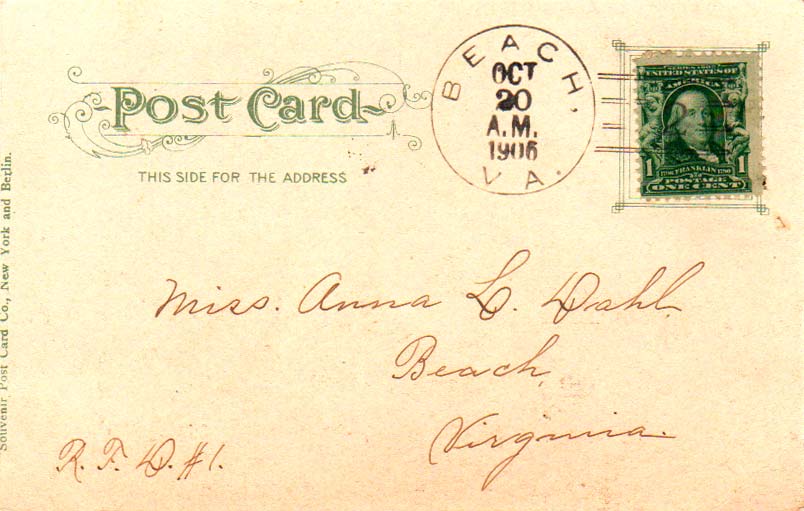 Post Card
THIS SIDE FOR THE ADDRESS
BEACH,
OCT
20
A.M.
1906
VA.
UNITED STATES OF
AMERICA
1 FRANKLIN 1
POSTAGE
ONE CENT
Miss. Anna L. Dahl.
Beach,
Virginia.
R. F. D. #1.
Souvenir Post Card Co., New York and Berlin.